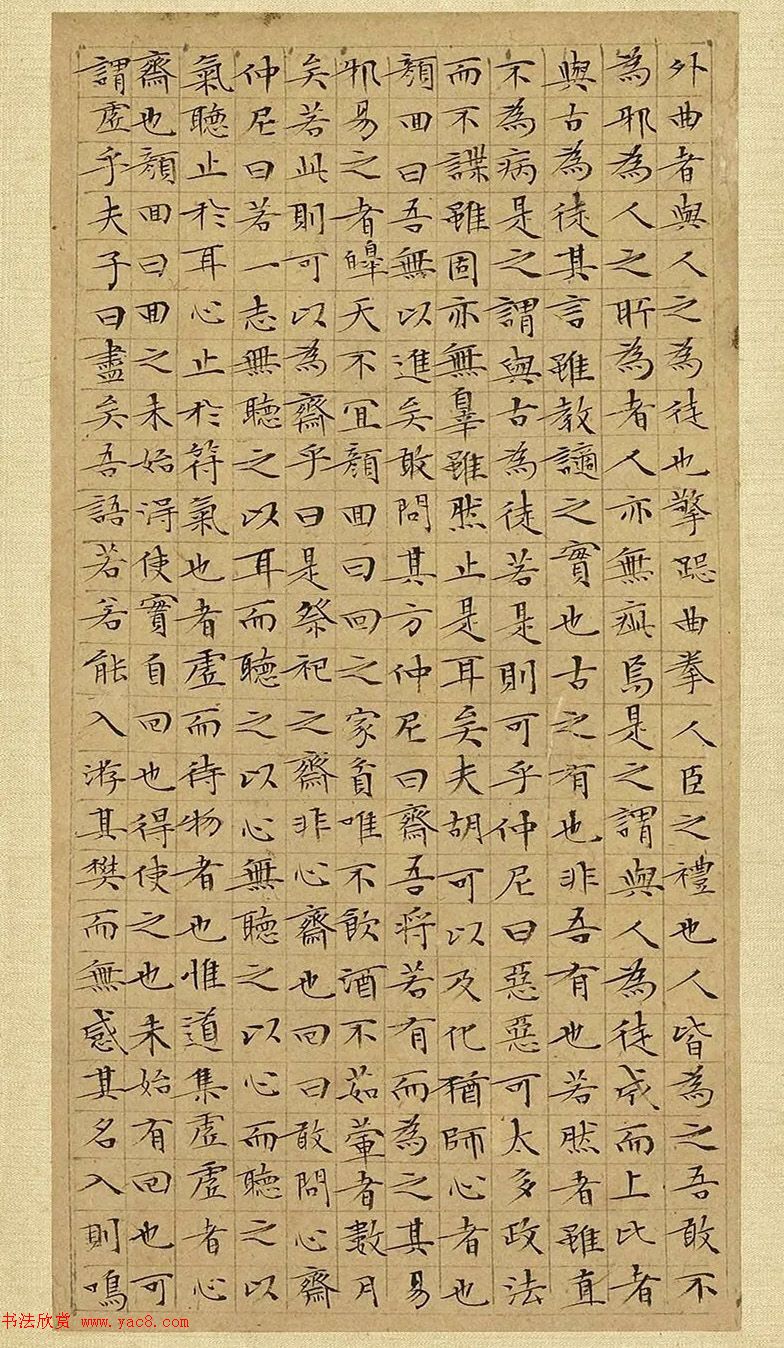 外曲者與人之為徒也擎跽曲拳人臣之禮也人皆為之吾敢不
為邪為人之所為者人亦無疵焉是之謂與人為徒成而上比者
與古為徒其言雖教謫之實也古之有也非吾有也若然者雖直
不為病是之謂與古為徒若是則可乎仲尼曰惡惡可太多政法
而不諜雖固亦無辠雖然止是耳矣夫胡可以及化猶師心者也
顏回曰吾無以進矣敢問其方仲尼曰齋吾將若有而為之其易
邪易之者皞天不宜顏回曰回之家貧唯不飲酒不茹葷者數月
矣若此則可以為齋乎曰是祭祀之齋非心齋也回曰敢問心齋
仲尼曰若一志無聽之以耳而聽之以心無聽之以心而聽之以
氣聽止於耳心止於符氣也者虛而待物者也惟道集虛虛者心
齋也顏回曰回之未始得使實自回也得使之也未始有回也可
謂虛乎夫子曰盡矣吾語若若能入游其樊而無感其名入則鳴
书法欣赏 www.yac8.com